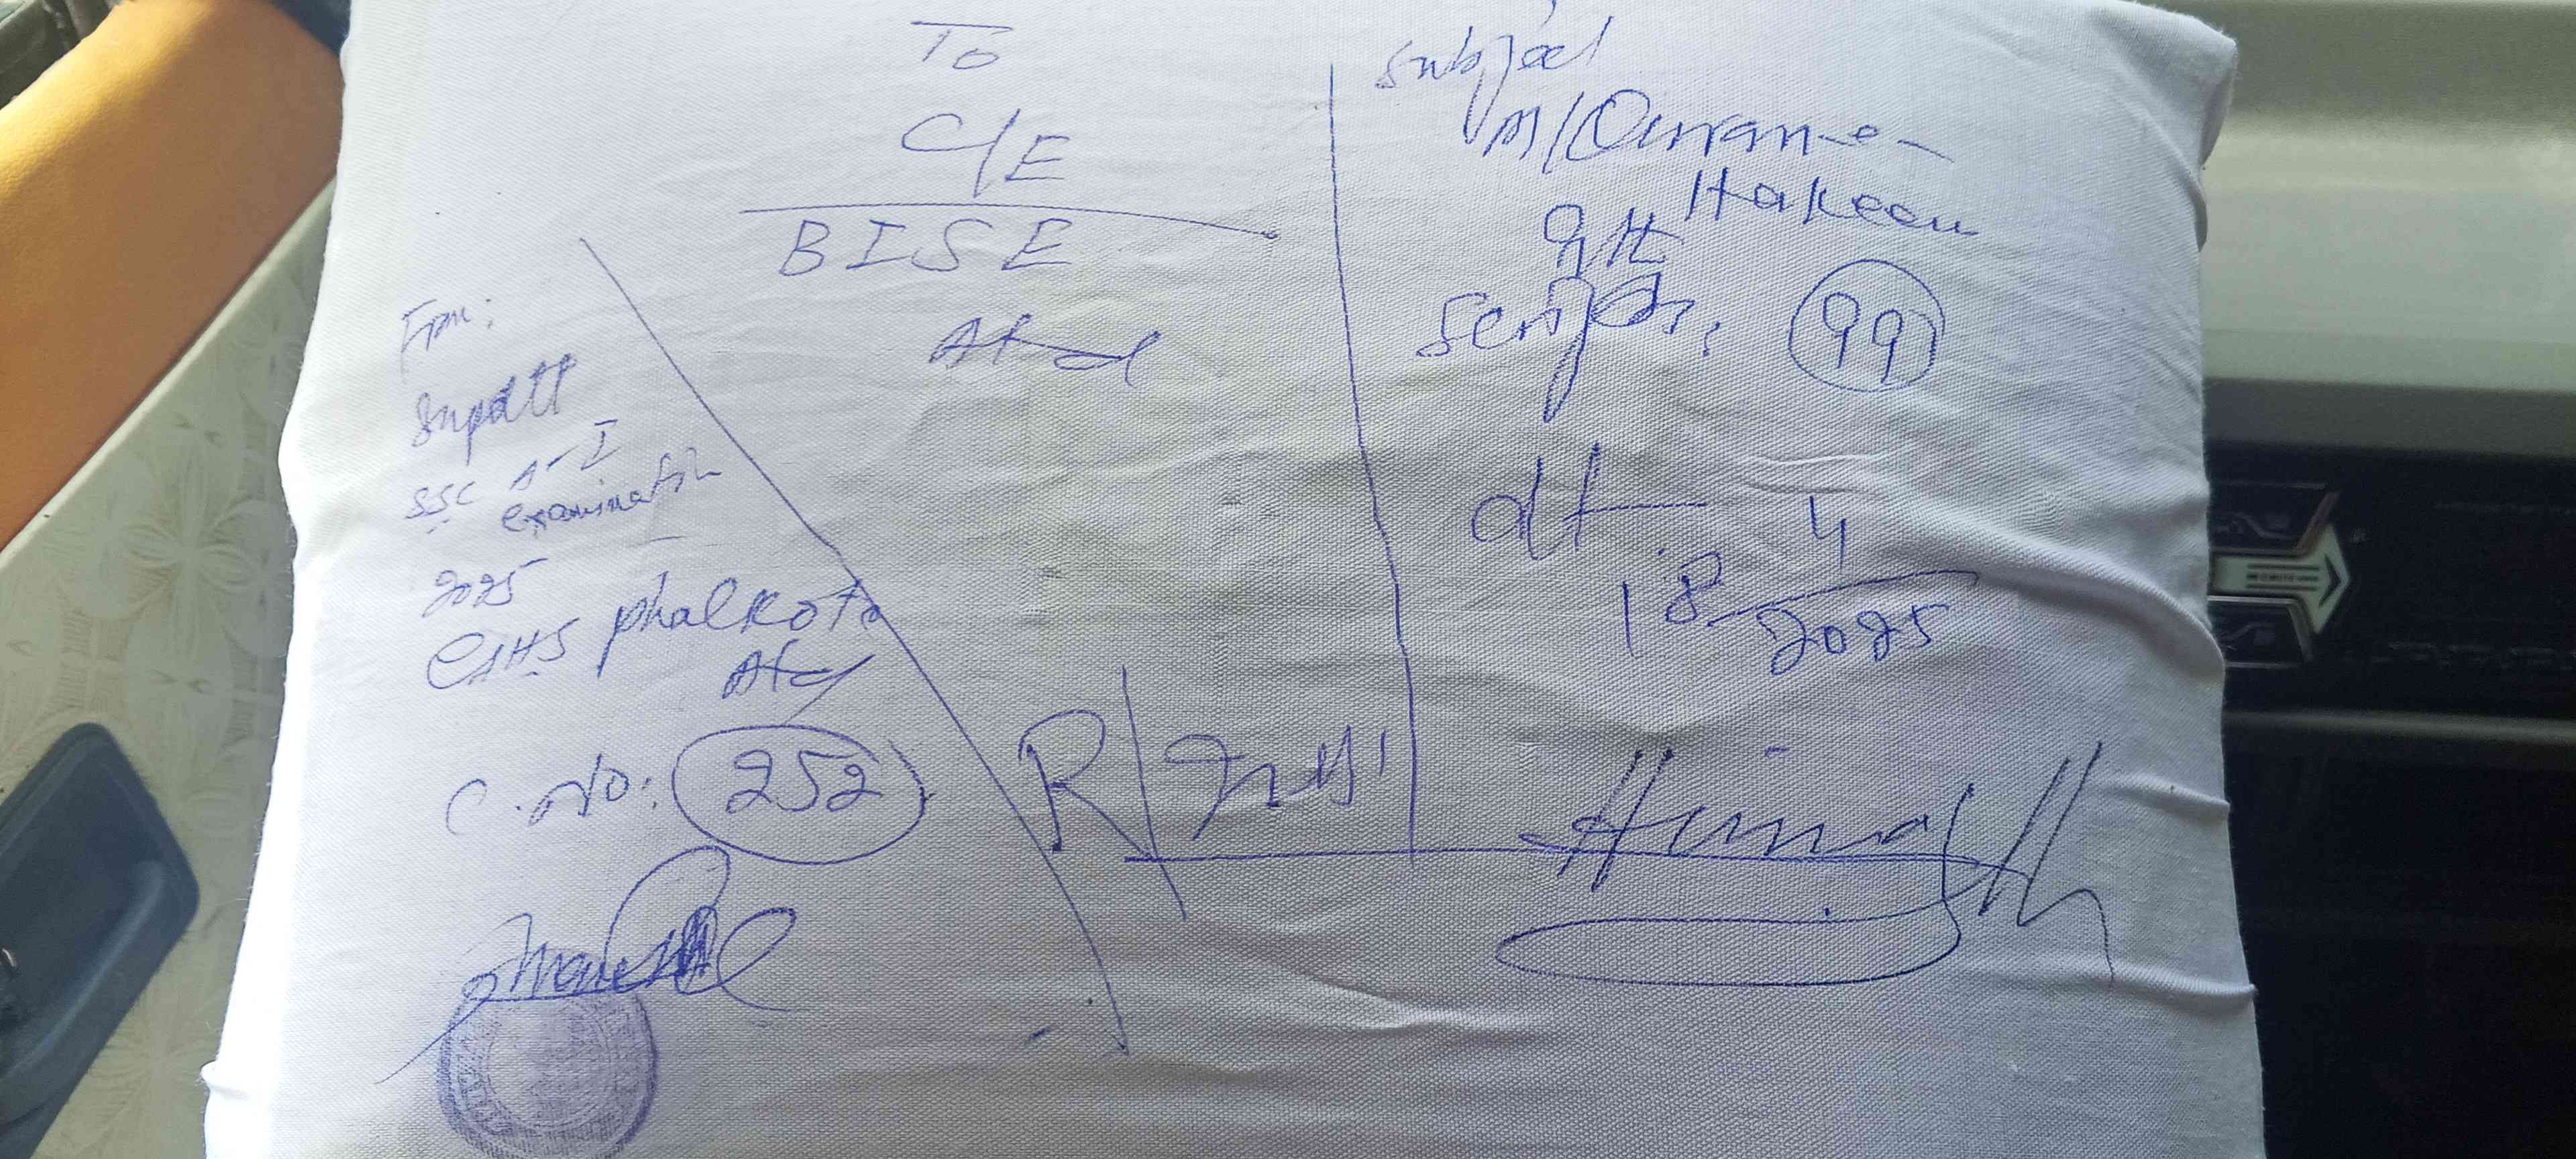 To
C/E
BISE
Atd
From:
Supdtt
SSC A-I
examination
2025
GHS phalkot
Atd
C.No: 252
Subject
M/Quran-e-
Hakeem
9th
Scripts: 99
dt
18-4
2025
R/